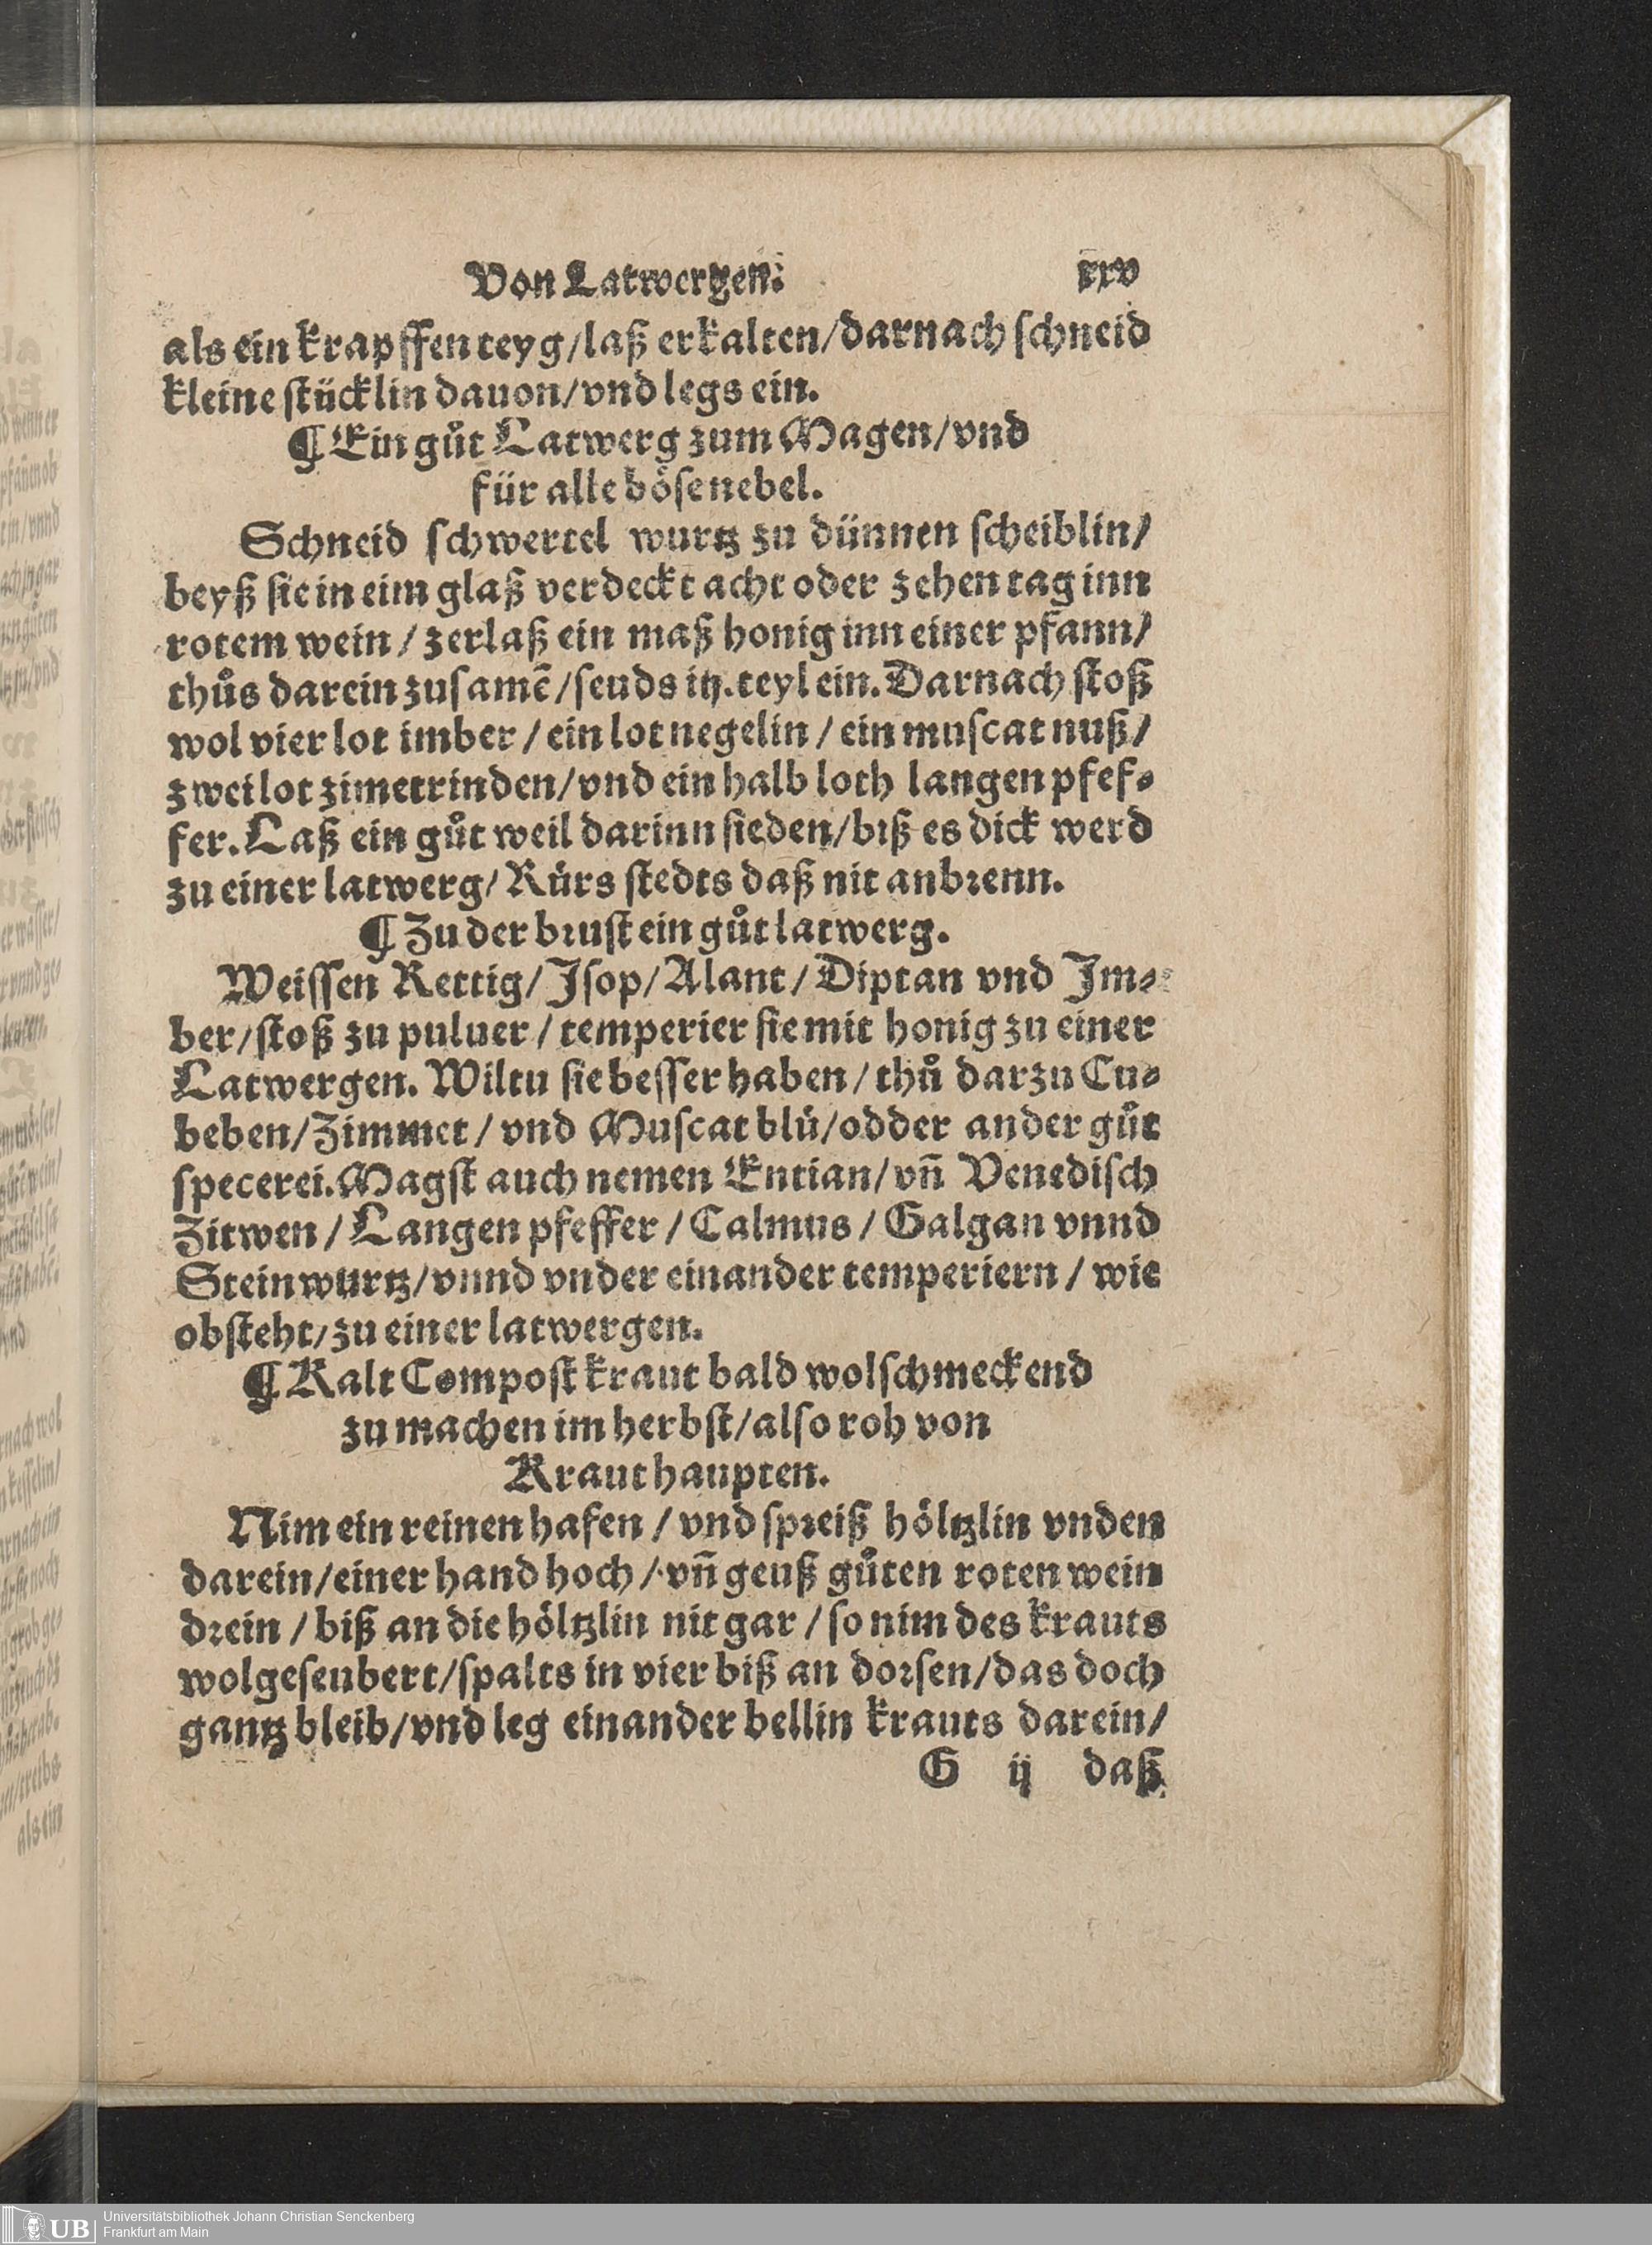 Von Latwergen. xxv
als ein krapffen teyg/laß erkalten/darnach schneid
kleine stücklin dauon/vnd legs ein.
¶ Ein gůt Latwerg zum Magen/vnd
für alle böse nebel.
Schneid schwertel wurtz zu dünnen scheiblin/
beyß sie in eim glaß verdeckt acht oder zehen tag inn
rotem wein / zerlaß ein maß honig inn einer pfann/
thůs darein zusamē/seuds iij. teyl ein. Darnach stoß
wol vier lot imber / ein lot negelin / ein muscat nuß/
zwei lot zimetrinden/vnd ein halb loth langen pfef-
fer. Laß ein gůt weil darinn sieden/biß es dick werd
zu einer latwerg/ Rürs stedts daß nit anbrenn.
¶ Zu der brust ein gůt latwerg.
Weissen Rettig/ Isop/ Alant/ Diptan vnd Im-
ber/stoß zu puluer / temperier sie mit honig zu einer
Latwergen. Wiltu sie besser haben / thů darzu Cu-
beben/Zimmet / vnd Muscatblü/odder ander gůt
specerei. Magst auch nemen Entian/ vn̄ Venedisch
Zitwen / Langen pfeffer / Calmus / Galgan vnnd
Steinwurtz/vnnd vnder einander temperiern / wie
obsteht/zu einer latwergen.
¶ Kalt Compost kraut bald wolschmeckend
zu machen im herbst/also roh von
Krauthaupten.
Nim ein reinen hafen / vnd spreiß höltzlin vnden
darein/einer hand hoch / vn̄ geuß gůten roten wein
drein / biß an die höltzlin nit gar / so nim des krauts
wolgeseubert/spalts in vier biß an dorsen/das doch
gantz bleib/vnd leg einander bellin krauts darein/
G ij daß
UB Universitätsbibliothek Johann Christian Senckenberg
Frankfurt am Main